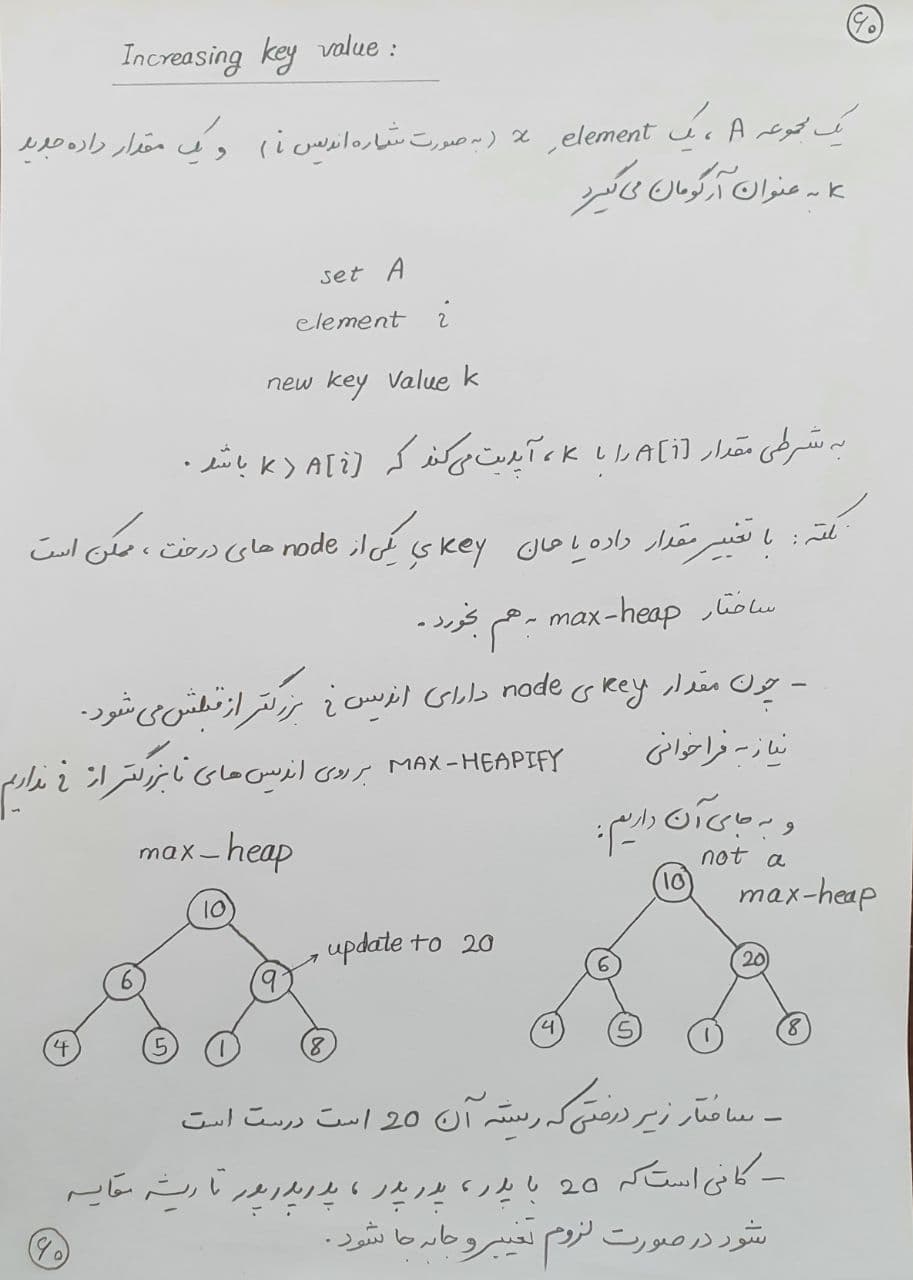 ۶۰
Increasing key value :
یک مجموعه A ، یک element ِ x (به صورت شماره اندیس i) و یک مقدار داده جدید
k به عنوان آرگومان می‌گیرد
set A
element i
new key value k
به شرطی مقدار A[i] را با k ، آپدیت می‌کند که k > A[i] باشد .
نکته : با تغییر مقدار داده یا همان key یِ یکی از node های درخت ، ممکن است
ساختار max-heap به هم بخورد .
- چون مقدار key ی node دارای اندیس i بزرگتر از قبلش می‌شود .
نیاز به فراخوانی MAX-HEAPIFY بر روی اندیس‌های نابزرگتر از i نداریم
و به جای آن داریم :
max_heap
10
6 9 update to 20
4 5 1 8
not a
max-heap
10
6 20
4 5 1 8
- ساختار زیر درختی که ریشه آن 20 است درست است
- کافی است که 20 با پدر ، پدر پدر ، پدر پدر پدر تا ریشه مقایسه
شود در صورت لزوم تغییر و جابه جا شود .
۶۰